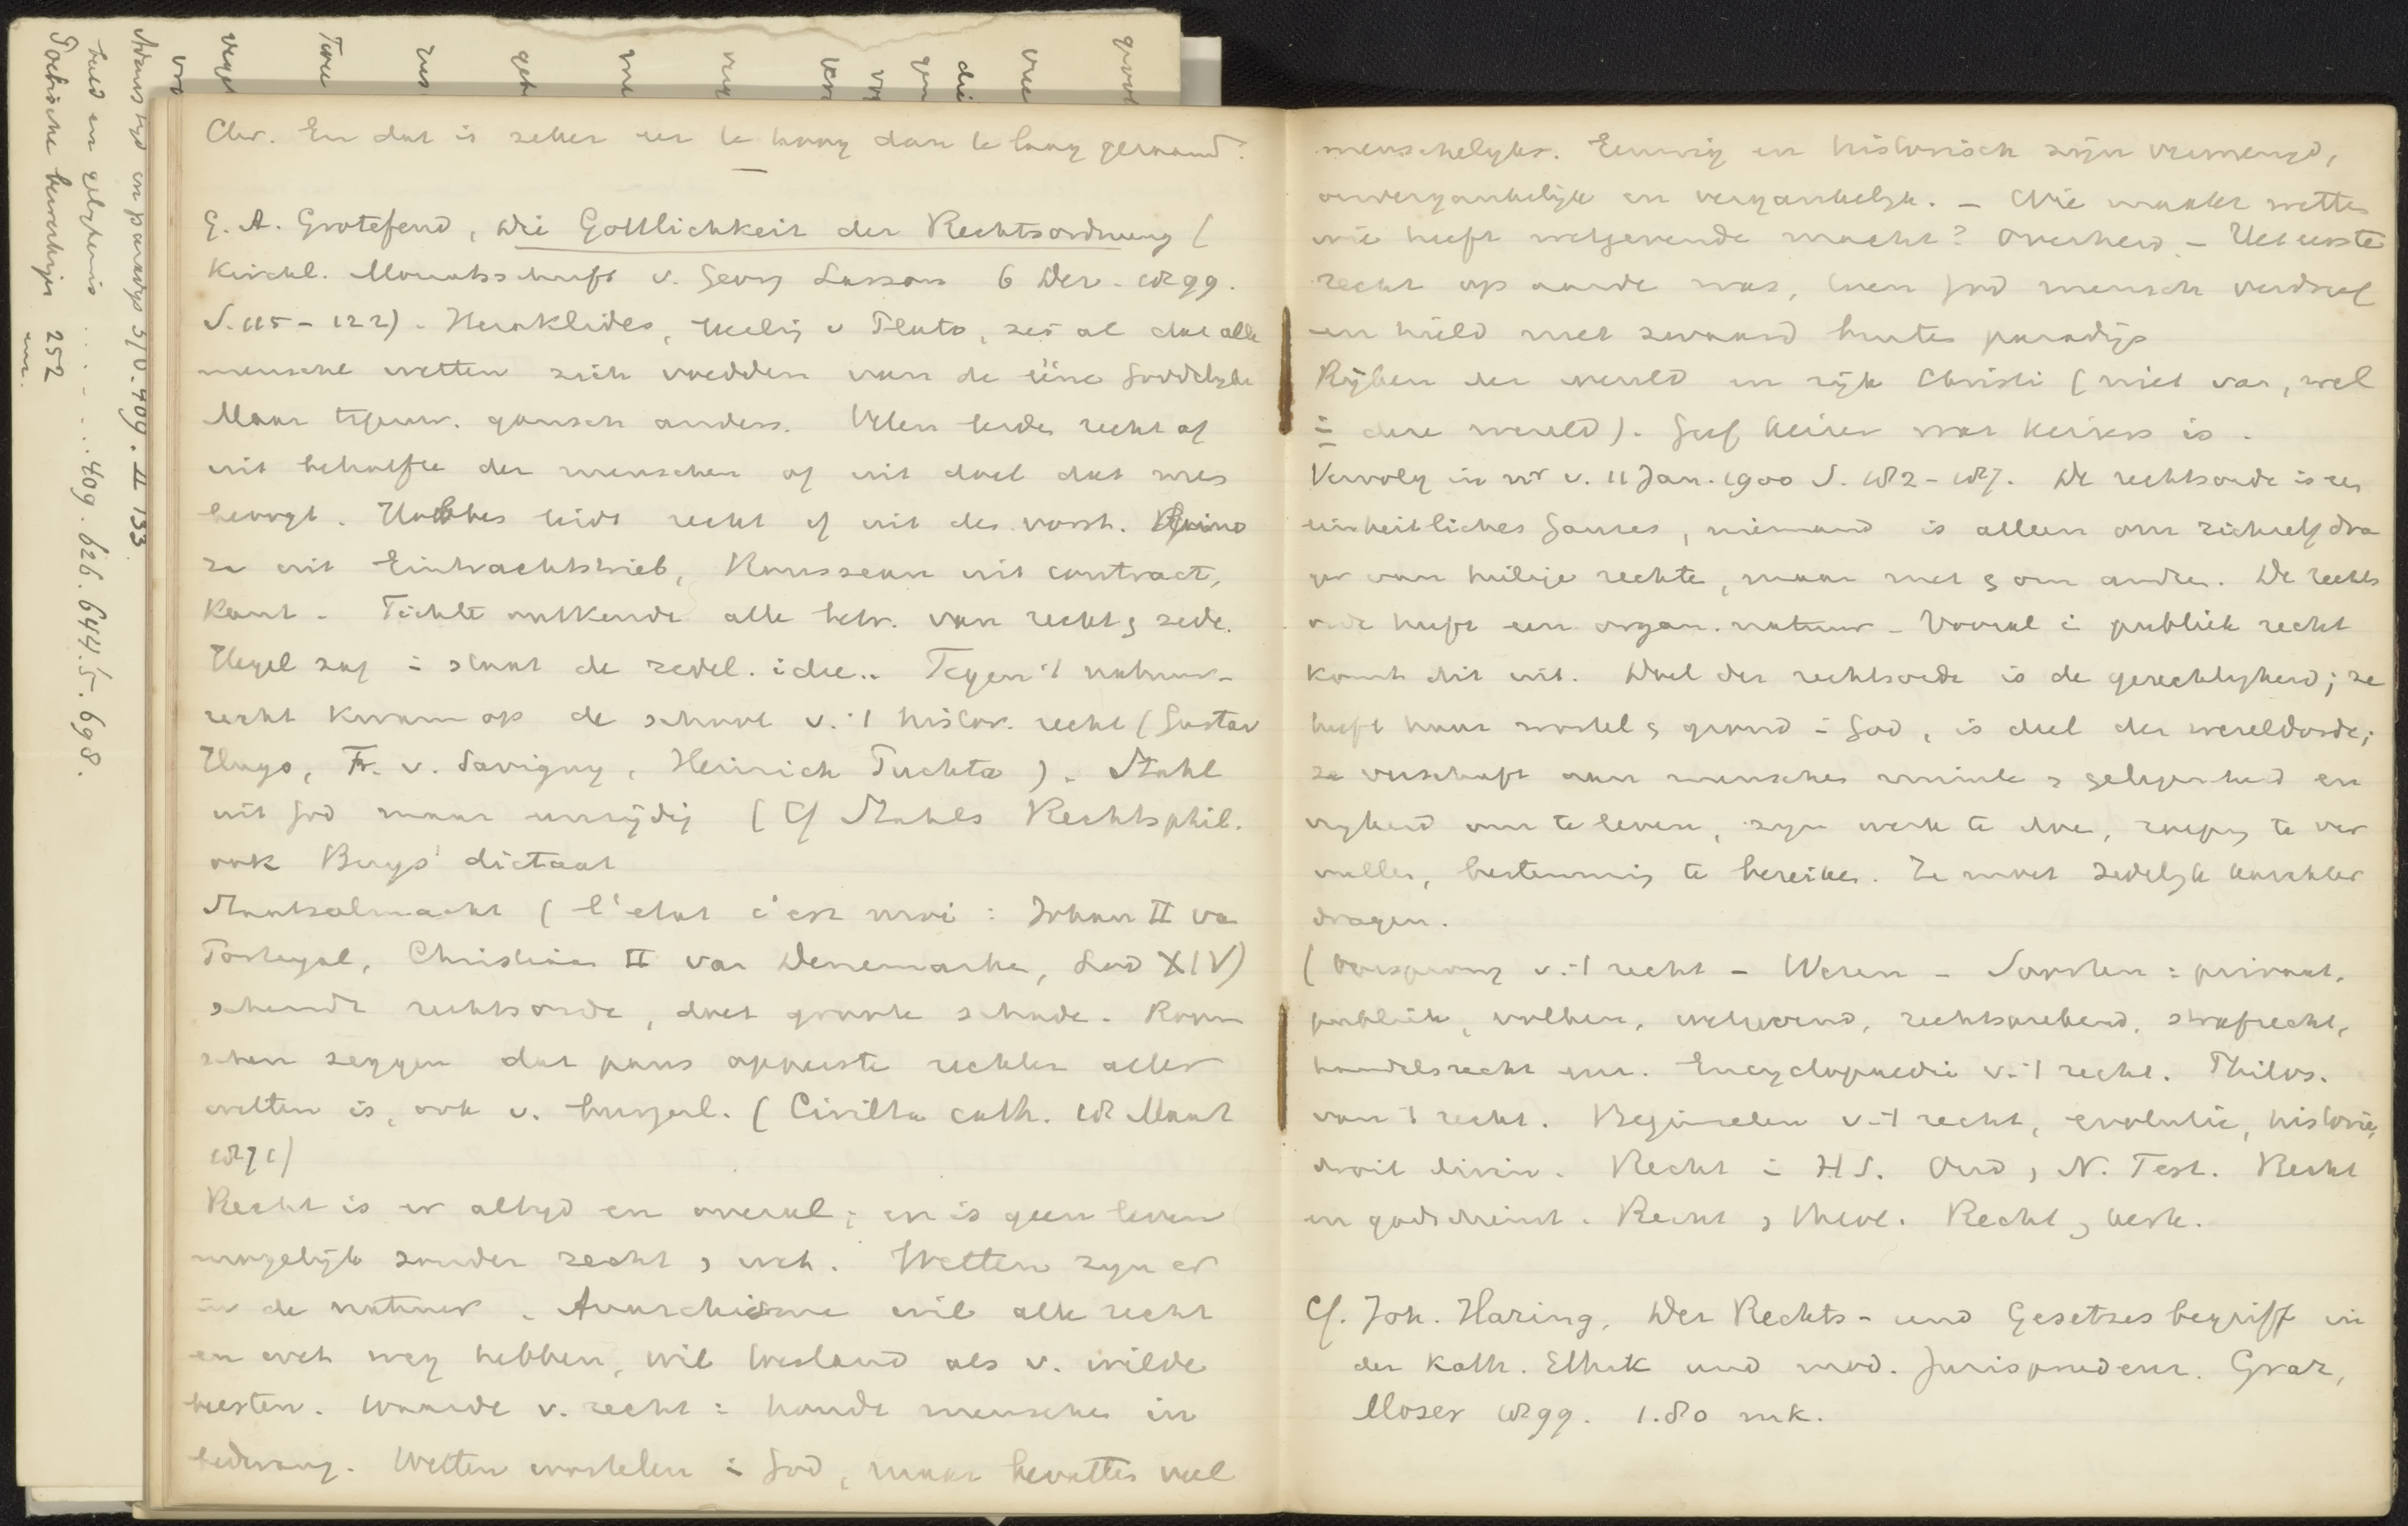 Chr. En dat is zeker eer te hoog dan te laag geraamd.
G. A. Grotefend, Die Göttlichkeit der Rechtsordnung (
Kirchl. Monatsschrift v. Georg Lasson 6 Dec. 1899.
S. 115-122). Heraklides, heilig v Plato, zei al dat alle
menschel wetten zich voedden van de ééne Goddelyke
Maar tegenw. gansch anders. Velen leiden recht af
uit behoefte der menschen of uit doel dat men
beoogt. Hobbes leidt recht af uit den vorst. Spino
za uit Eintrachtstrieb, Rousseau uit contract,
Kant. Fichte ontkende alle betr. van recht & zede.
Hegel zag i. staat de zedel. idee.. Tegen 't natuur-
recht kwam op de school v. 't histor. recht (Gustav
Hugo, Fr. v. Savigny, Heinrich Puchta). Stahl
uit God maar eenzijdig (Cf Stahls Rechtsphil.
ook Buys' dictaat
Staatsalmacht (l'etat c'est moi: Johan II va
Portugal, Christiaan II van Denemarken, Lod XIV)
schendt rechtsorde, doet groote schade. Room
schen zeggen dat paus opperste rechter aller
wetten is, ook v. burgerl. (Civilta cath. 18 Maart
1871)
Recht is er altyd en overal; er is geen leven
mogelijk zonder recht & wet. Wetten zyn er
in de natuur. Anarchisme wil alle recht
en wet weg hebben, wil toestand als v. wilde
beesten. Waarde v. recht: houdt menschen in
bedwang. Wetten wortelen i. God, maar bevatten veel
menschelyks. Eeuwig en historisch zijn vermengd,
onvergankelijk en vergankelyk. - Wie maakt wetten
wie heeft wetgevende macht? Overheid - Het eerste
recht op aarde was, toen God mensch verdreef
en hield met zwaard buiten paradijs
Rijken der wereld en rijk Christi (niet van, wel
i. deze wereld). Geef keizer wat keizers is.
Vervolg in nr v. 11 Jan. 1900 S. 182-187. De rechtsorde is een
einheitliches Ganzes, niemand is alleen om zichzelf dra
ger van heilige rechten, maar met & om andren. De rechts
orde heeft een organ. natuur - Vooral i. publiek recht
komt dit uit. Doel der rechtsorde is de gerechtigheid; ze
heeft haar wortel & grond i. God, is deel der wereldorde;
ze verschaft aan menschen ruimte & gelegenheid en
vryheid om te leven, zyn werk te doen, roeping te ver
vullen, bestemming te bereiken. Ze moet zedelyk karakter
dragen.
(Oorsprong v. 't recht - Wezen - Soorten: privaat,
publiek, volken, wetgevend, rechtsprekend, strafrecht,
handelsrecht enz. Encyclopaedie v. 't recht. Philos.
van 't recht. Beginselen v. 't recht, evolutie, historie,
droit divin. Recht i. H S. Oud & N. Test. Recht
en godsdienst. Recht & theol. Recht & kerk.
Cf. Joh. Haring, Der Rechts- und Gesetzesbegriff in
der kath. Ethik und mod. Jurisprudenz. Graz,
Moser 1899. 1.80 mk.
Adams tyd en paradys 310. 409. II 133
beeld en gelykenis ..... 409. 626. 644.5. 698.
252
enz.